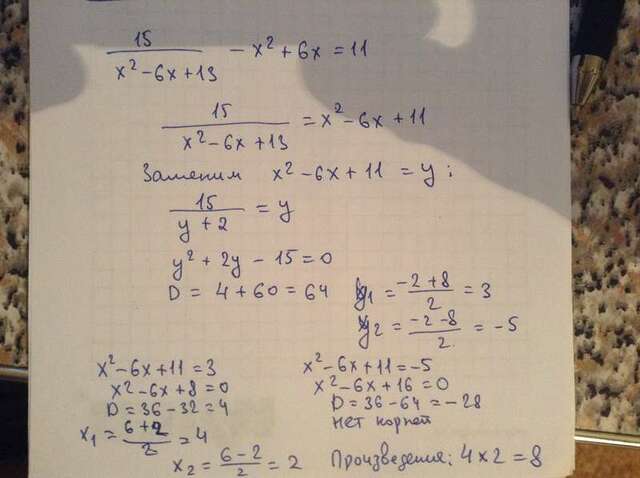 15/(x² - 6x + 13) - x² + 6x = 11
15/(x² - 6x + 13) = x² - 6x + 11
Заменим x² - 6x + 11 = y:
15/(y + 2) = y
y² + 2y - 15 = 0
D = 4 + 60 = 64
y₁ = (-2 + 8)/2 = 3
y₂ = (-2 - 8)/2 = -5
x² - 6x + 11 = 3
x² - 6x + 8 = 0
D = 36 - 32 = 4
x₁ = (6 + 2)/2 = 4
x₂ = (6 - 2)/2 = 2
x² - 6x + 11 = -5
x² - 6x + 16 = 0
D = 36 - 64 = -28
нет корней
Произведения: 4 × 2 = 8